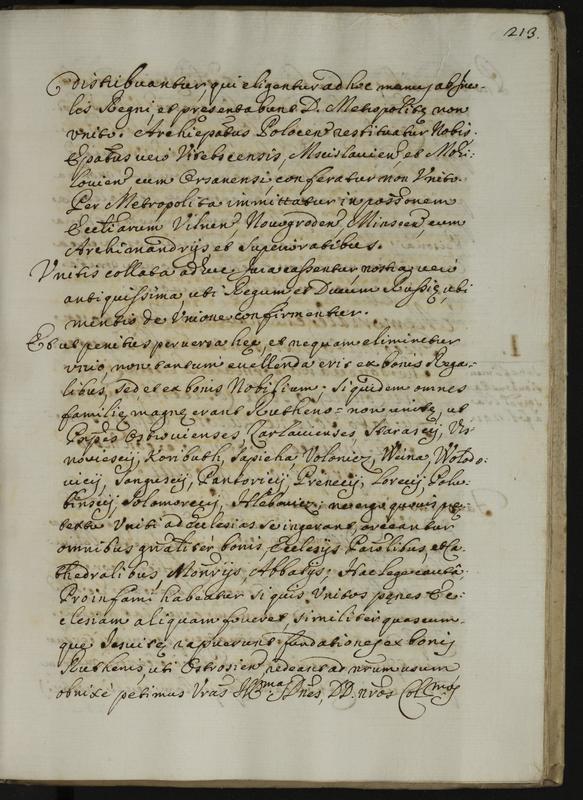 213.
distribuantur, qui eligentur ad hoc munus ab Inco-
lis Regni, et presentabunt D. Metropolitę non
Vnito. Archiepatus Polocen restituatur Nobis.
Epatus vero Vitebscensis, Mscislavien, et Mohi-
lovien cum Orsanensi, conferatur non Vnito.
Per Metropolita immittatur in possonem
Eccliarum Vilnen Novogroden, Minscen cum
Archimandrijs et Superioratibus.
Vnitis collata adhuc Iura cassentur nostra vero
antiquissima, uti Regum et Ducum Russię, ubi
mentis de Vnione confirmentur.
Et ut penitus perversa hęc, et nequam eliminetur
Vnio, non tantum evellenda erit ex bonis Rega-
libus, sed et ex bonis Nobilium: Siquidem omnes
familię magnę erant Rutheno-non unitę, ut
Ostrovienses, Zaslavienses, Vis-
nioviescij, Koributh, Sapieha, Volovicz, Meina, Wołodo-
vicij, Sanguscij, Pantovicij, Preneccij, Lorecij, Polu-
binscij, Solomorecij, Hlebovicz; ne ergo quovis prę-
textu Vniti ad ecclesias se ingerant, arceantur
omnibus gnaliter bonis, Ecclesijs Parolibus, et Ca-
thedralibus, Monrijs, Abbatijs; Hac lege cauta,
Pro infami habeatur si quis Vnitos penes Ec-
clesiam aliquam foveret, similiter quascum-
que Iesuitę rapuerunt fundationes ex bonis
Ruthenis, uti Ostrosien redeant ad nrum usum
obnixe petimus Vras Illmas Dnes, DD. nros Colmos